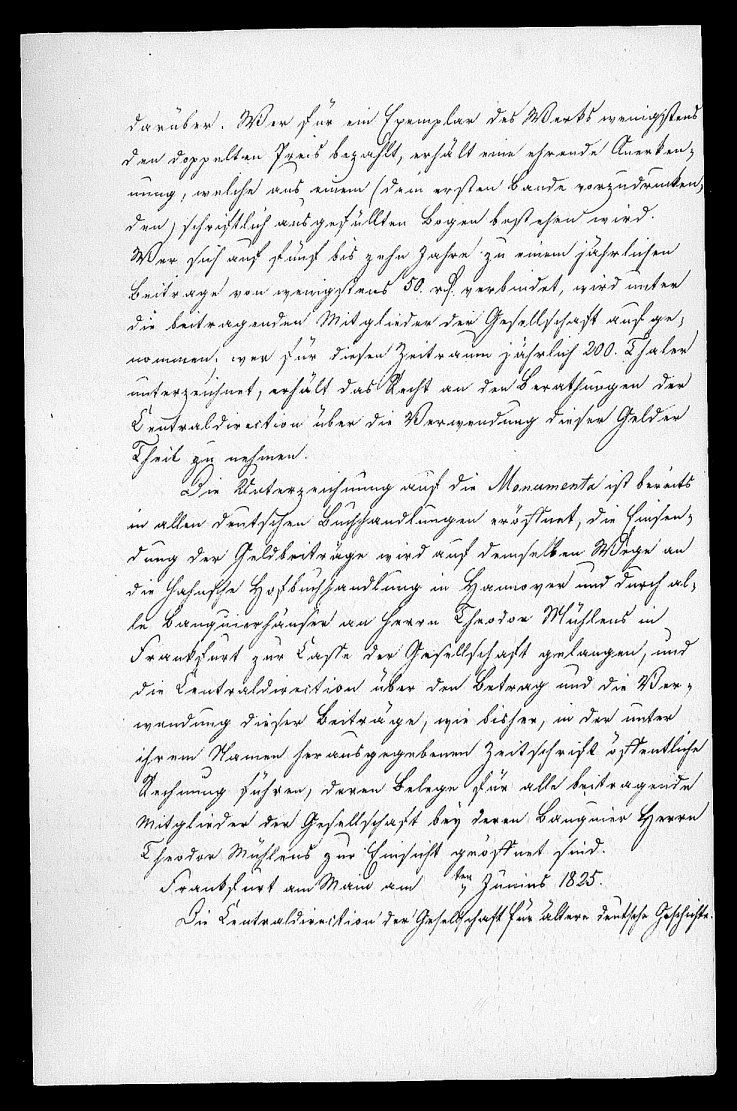 darüber. Wer für ein Exemplar des Werks wenigstens
den doppelten Preis bezahlt, erhält eine ehrende Anerken-
nung, welche aus einem (dem ersten Bande vorzudrucken-
den) schriftlich ausgefüllten Bogen bestehen wird.
Wer sich auf fünf bis zehn Jahre zu einem jährlichen
Beitrage von wenigstens 50. rh. verbindet, wird unter
die beitragenden Mitglieder der Gesellschaft auf ge-
nommen; wer für diesen Zeitraum jährlich 200. Thaler
unterzeichnet, erhält das Recht an den Berathungen der
Centraldirection über die Verwendung dieser Gelder
Theil zu nehmen.
Die Unterzeichnung auf die Monumenta ist bereits
in allen deutschen Buchhandlungen eröffnet, die Einsen-
dung der Geldbeiträge wird auf demselben Wege an
die Hahnsche Hofbuchhandlung in Hannover und durch al-
le Banquierhäuser an Herrn Theodor Mühlens in
Frankfurt zur Casse der Gesellschaft gelangen, und
die Centraldirection über den Betrag und die Ver-
wendung dieser Beiträge, wie bisher, in der unter
ihrem Namen herausgegebenen Zeitschrift öffentliche
Rechnung führen, deren Belege für alle beitragende
Mitglieder der Gesellschaft bey deren Banquier Herrn
Theodor Mühlens zur Einsicht geöffnet sind.
Frankfurt am Main am ten Junius 1825.
Die Centraldirection der Gesellschaft für ältere deutsche Geschichte.